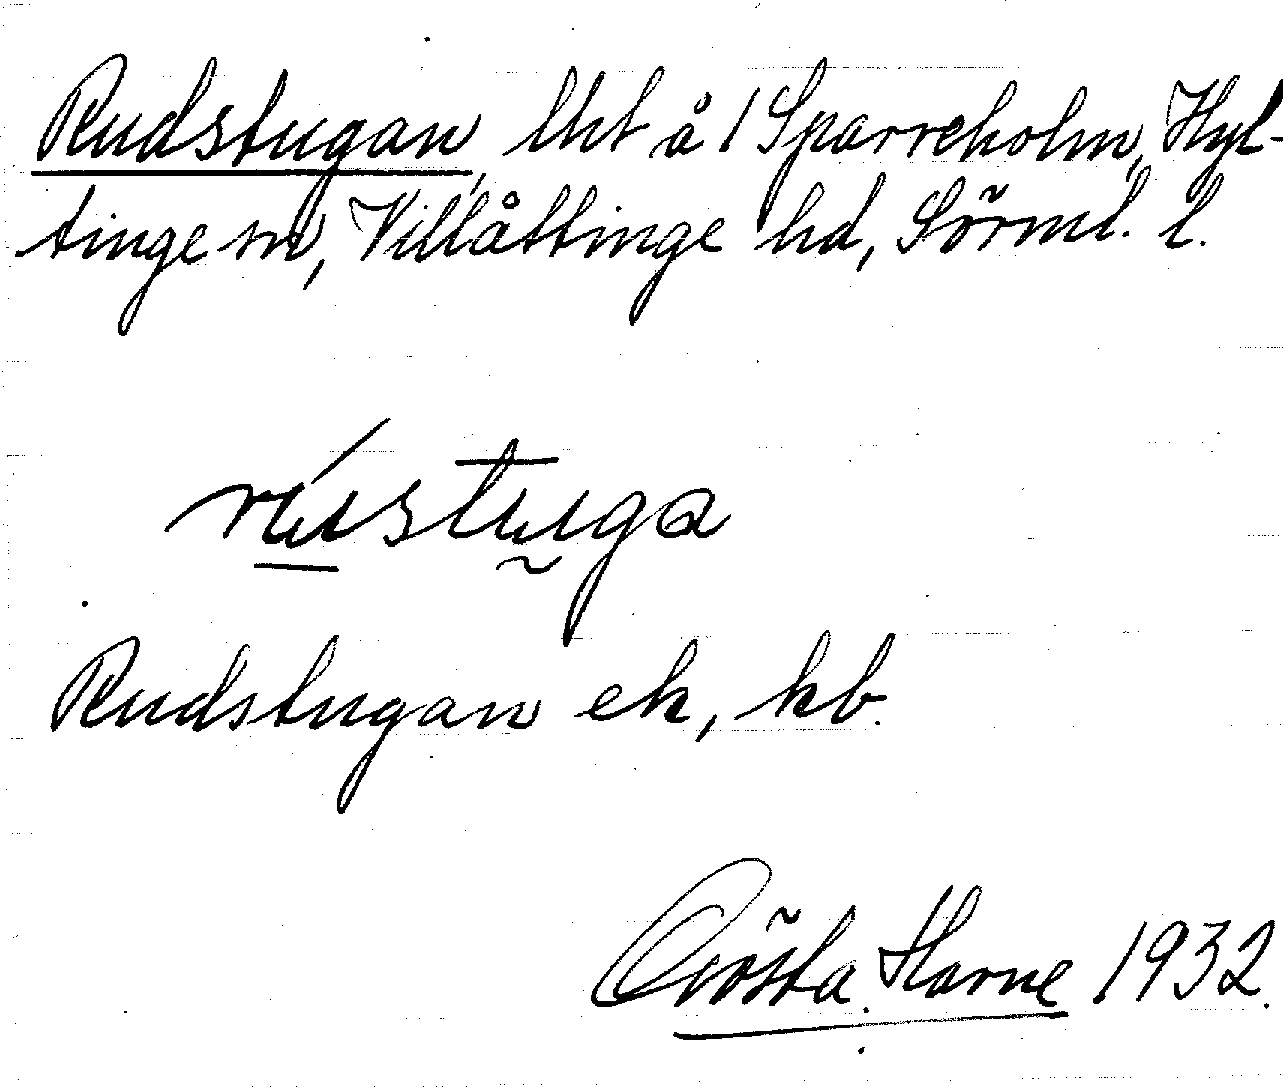 Rudstugan, lht å 1 Sparreholm, Hyl-
tinge sn, Villåttinge hd, Sörml. l.
rústuga
Rudstugan ek, kb.
Gösta Harne 1932.